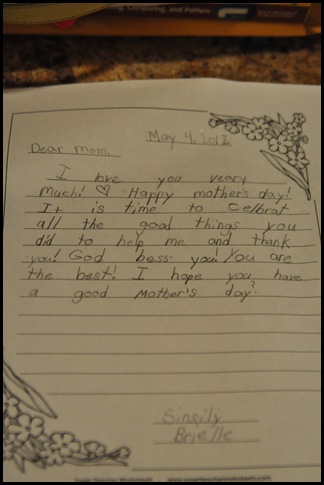 Computing, and Pattern
May 4, 2012
Dear mom,
I love you veary
much! ♡ Happy mother's day!
It is time to Celbrat
all the good things you
did to help me and thank
you! God bess you! You are
the best! I hope you have
a good Mother's day.
Sinsily
Brielle
Super Teacher Worksheets - www.superteacherworksheets.com